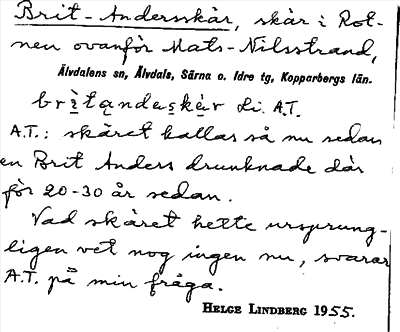 Brit-Andersskär, skär i Rot-
nen ovanför Mats-Nilsstrand,
Älvdalens sn, Älvdals, Särna o. Idre tg, Kopparbergs län.
A.T.
A.T.: skäret kallas så nu sedan
en Brit Anders drunknade där
för 20-30 år sedan.
Vad skäret hette ursprung-
ligen vet nog ingen nu, svarar
A.T. på min fråga.
HELGE LINDBERG 1955.